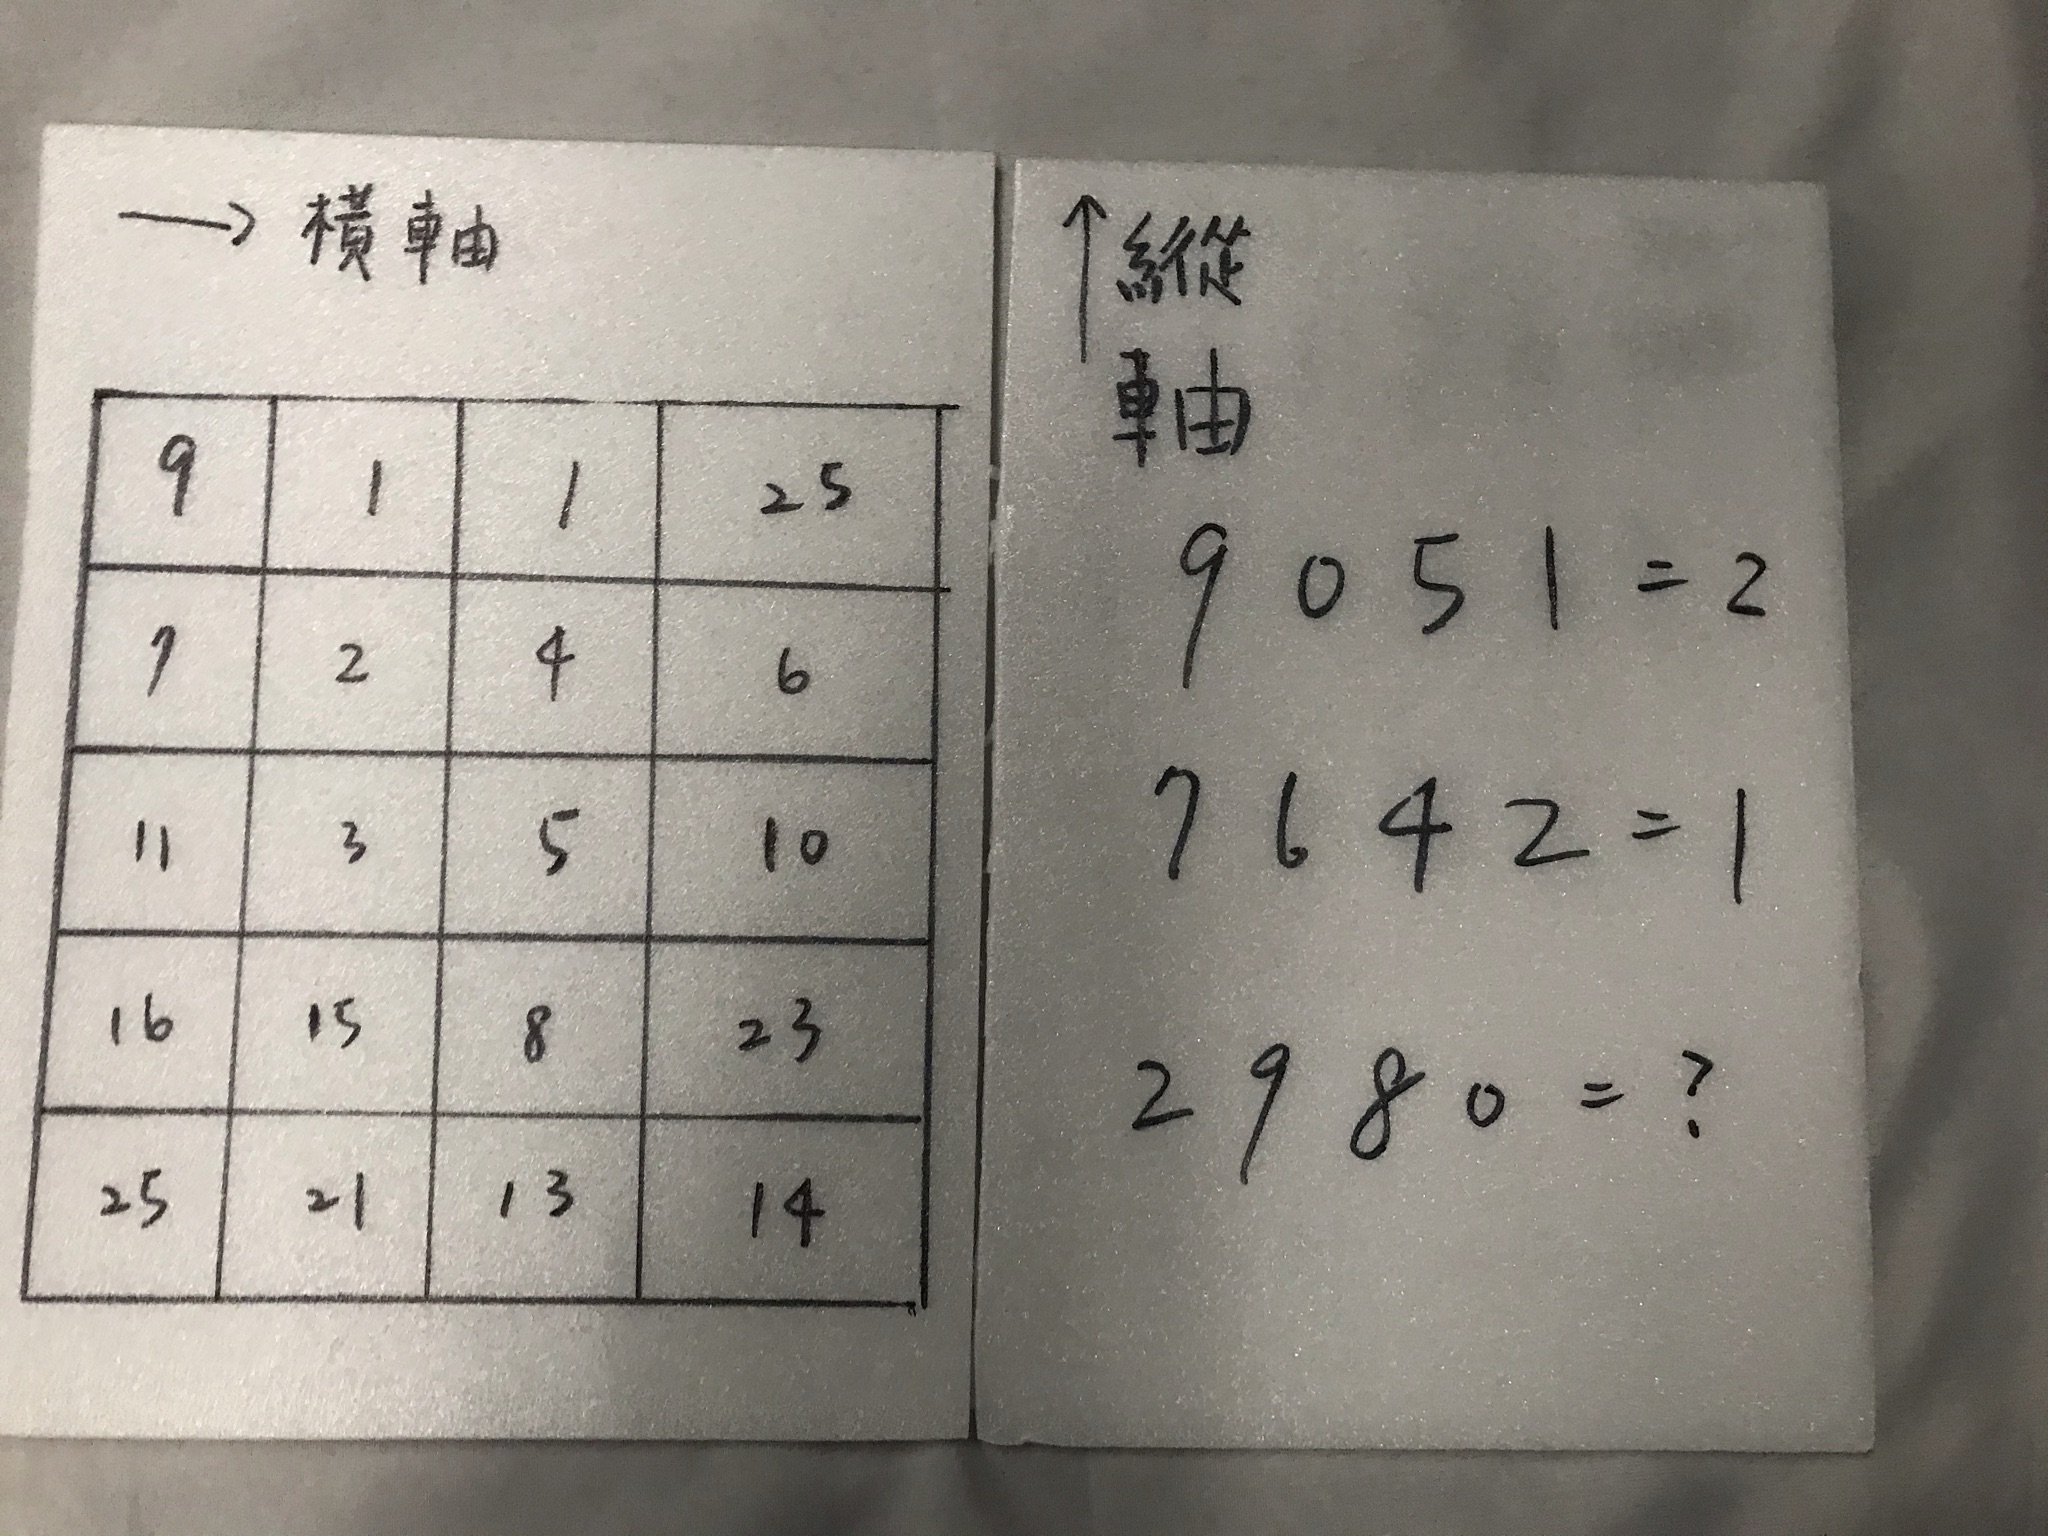 → 橫軸
9 1 1 25
7 2 4 6
11 3 5 10
16 15 8 23
25 21 13 14
↑ 縱
軸
9 0 5 1 = 2
7 6 4 2 = 1
2 9 8 0 = ?